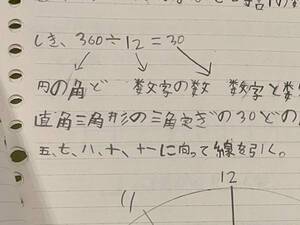 しき、360÷12=30
円の角ど 数文字の数 数字と数
直角三角形の三角定ぎの30どの
五、七、八、十、十一に向って線を引く。
12
11